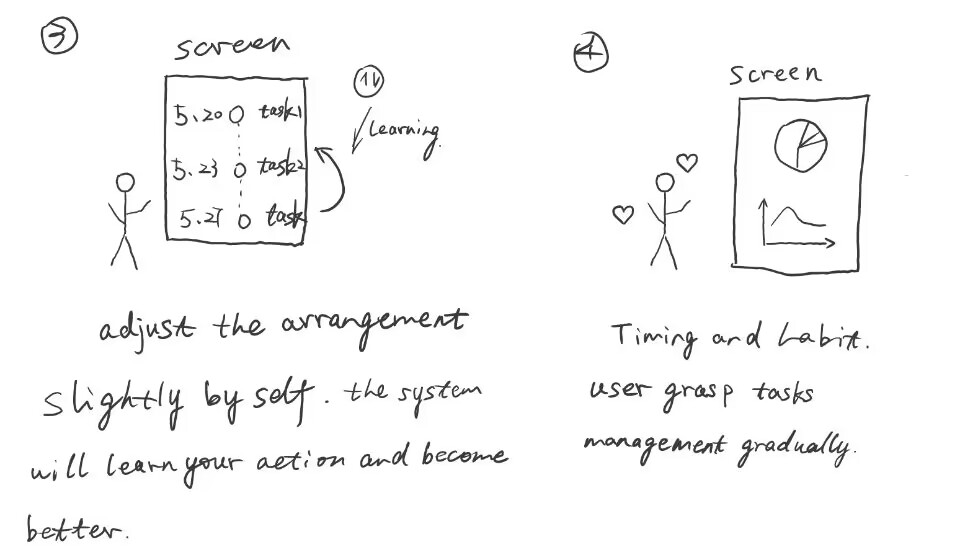 ③
screen
5.20 task1
5.23 task2
5.27 task
Learning.
adjust the arrangement
slightly by self. the system
will learn your action and become
better.
④
screen
Timing and habit.
user grasp tasks
management gradually.